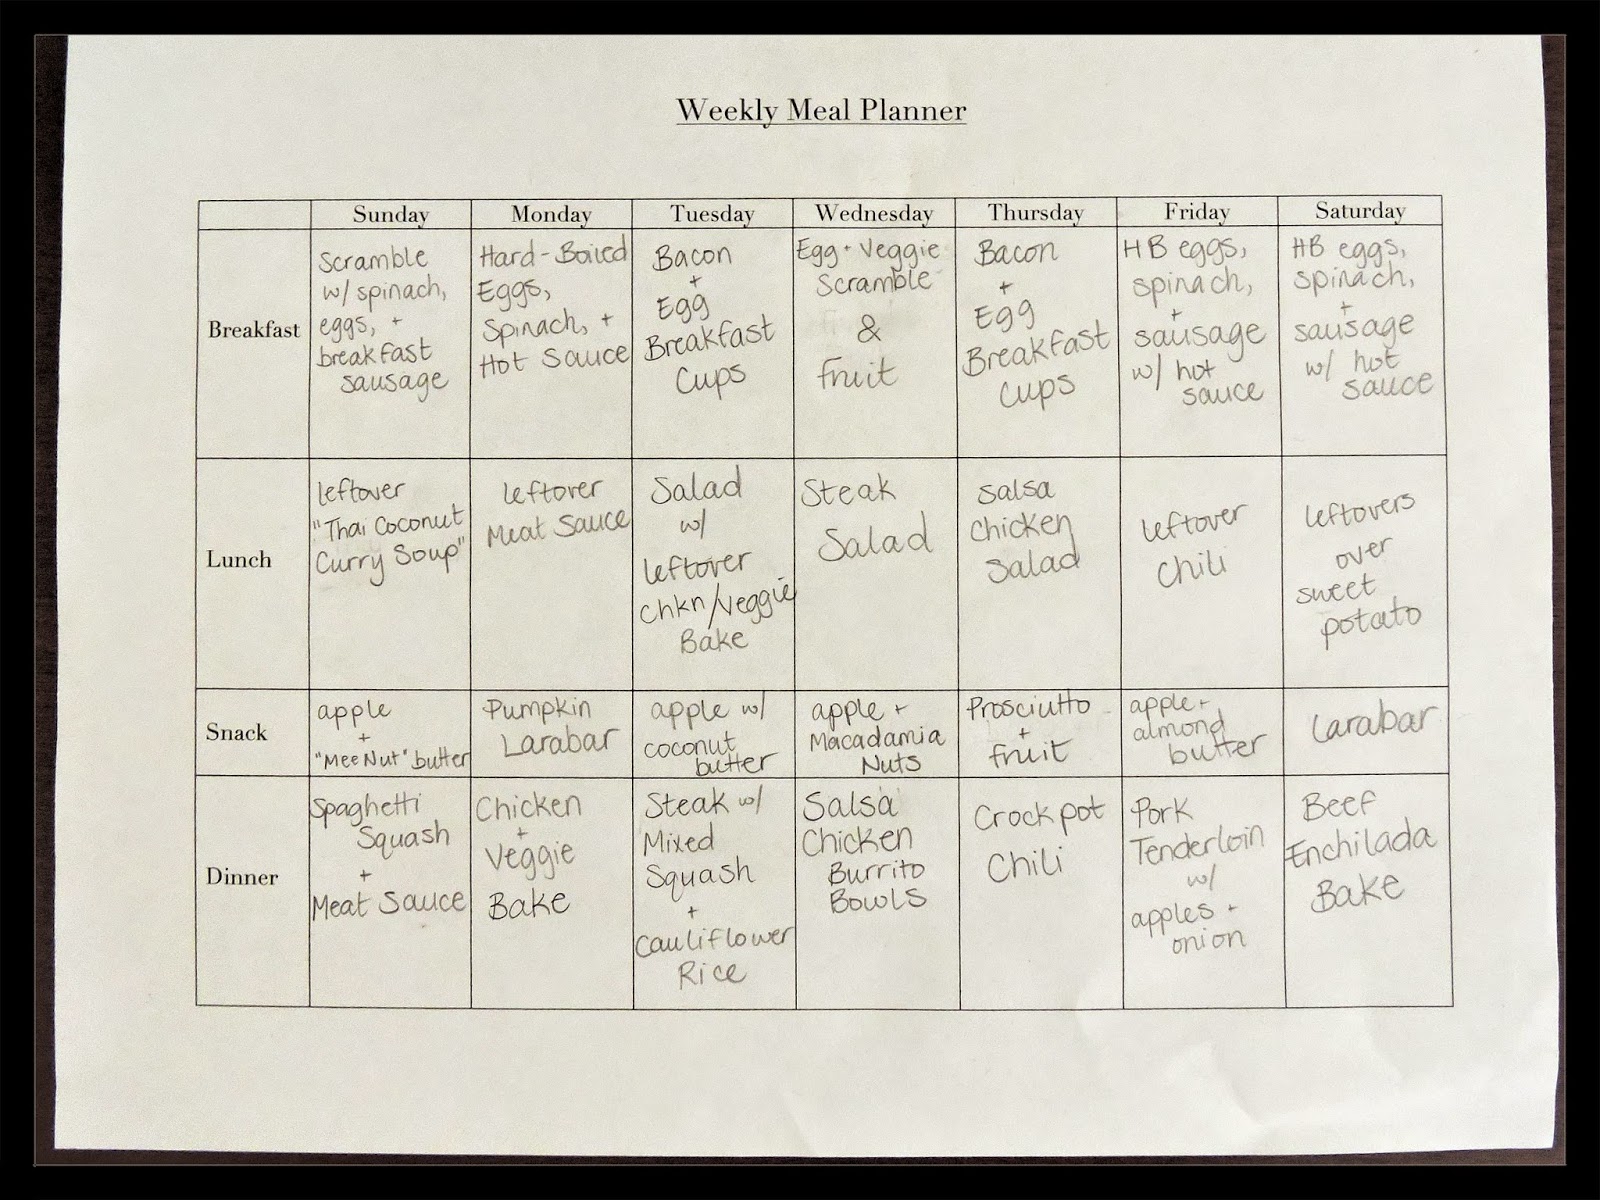 Weekly Meal Planner
Sunday Monday Tuesday Wednesday Thursday Friday Saturday
Breakfast
Scramble
w/ spinach,
eggs, +
breakfast
sausage
Hard-Boiled
Eggs,
Spinach, +
Hot Sauce
Bacon
+
Egg
Breakfast
Cups
Egg + Veggie
Scramble
&
fruit
Bacon
+
Egg
Breakfast
Cups
HB eggs,
spinach,
+
sausage
w/ hot
sauce
HB eggs,
spinach,
+
sausage
w/ hot
sauce
Lunch
leftover
"Thai Coconut
Curry Soup"
leftover
Meat Sauce
Salad
w/
leftover
chkn/veggie
Bake
Steak
Salad
Salsa
Chicken
Salad
leftover
chili
leftovers
over
sweet
potato
Snack
apple
+
"MeeNut" butter
Pumpkin
Larabar
apple w/
coconut
butter
apple +
Macadamia
Nuts
Prosciutto
+
fruit
apple +
almond
butter
Larabar
Dinner
Spaghetti
Squash
+
Meat Sauce
Chicken
+
Veggie
Bake
Steak w/
Mixed
Squash
+
Cauliflower
Rice
Salsa
Chicken
Burrito
Bowls
Crockpot
Chili
Pork
Tenderloin
w/
apples +
onion
Beef
Enchilada
Bake